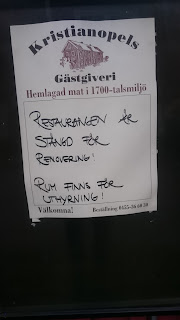 Kristianopels
Gästgiveri
Hemlagad mat i 1700-talsmiljö
RESTAURANGEN ÄR
STÄNGD FÖR
RENOVERING!
RUM FINNS FÖR
UTHYRNING!
Välkomna!
Beställning 0455-36 60 30